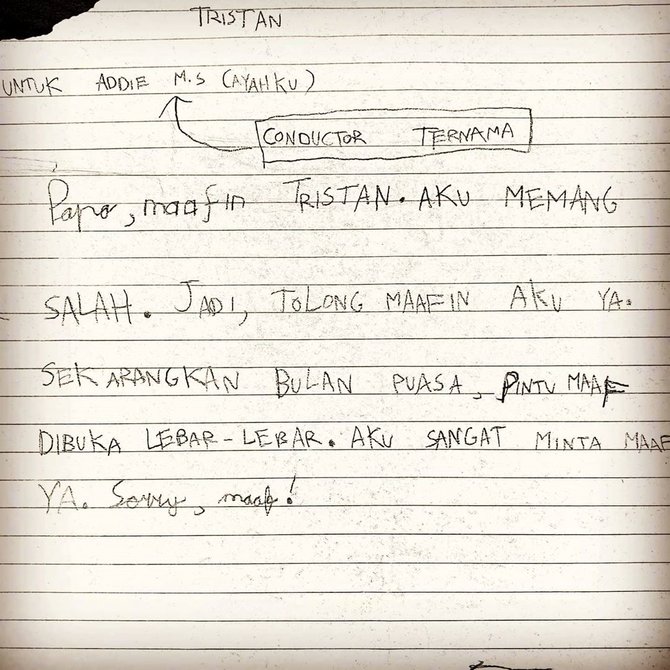 TRISTAN
UNTUK ADDIE M.S (AYAHKU)
CONDUCTOR TERNAMA
Papa, maafin TRISTAN. AKU MEMANG
SALAH. JADI, TOLONG MAAFIN AKU YA.
SEKARANGKAN BULAN PUASA, PINTU MAAF
DIBUKA LEBAR-LEBAR. AKU SANGAT MINTA MAAF
YA. Sorry, maaf!